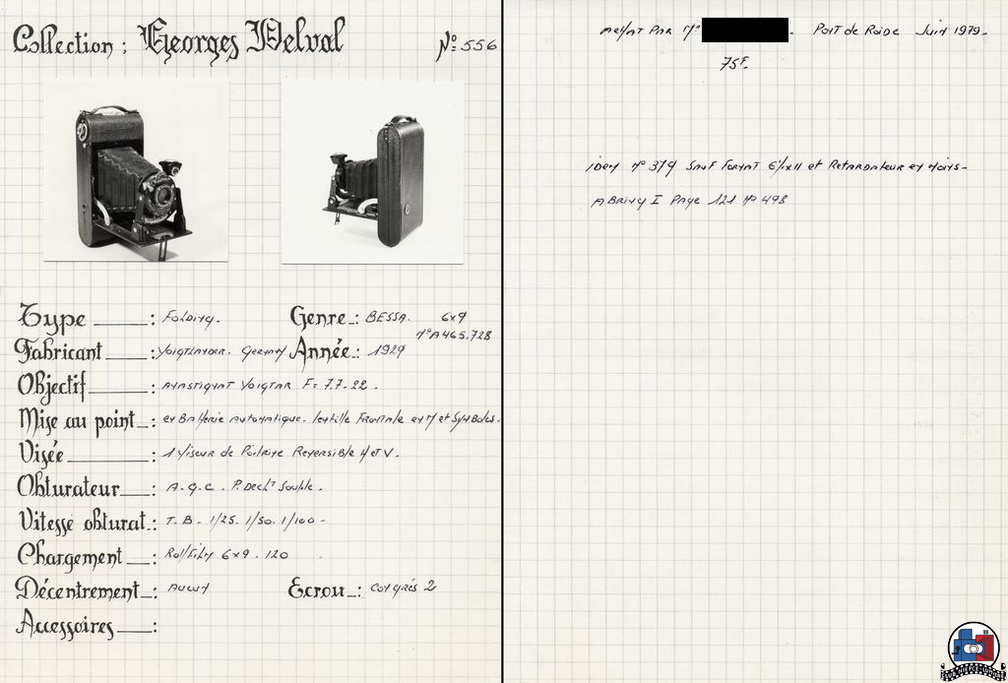 Collection : Georges Delval N° 556
Type : Folding.
Genre : BESSA. 6x9
N° A465.728
Fabricant : Voigtlander. Germany
Année : 1929
Objectif : Anastigmat Voigtar F= 7.7-22.
Mise au point : en Batterie Automatique. lentille Frontale en M et Symboles.
Visée : 1 Viseur de Poitrine Reversible H et V.
Obturateur : A.G.C. P. Dect Souple.
Vitesse obturat. : T. B. 1/25. 1/50. 1/100 -
Chargement : Roll Film 6x9. 120
Décentrement : Aucun
Ecrou : Congrés 2
Accessoires :
Achat PAR Mr . Port de Rade Juin 1979-
75F.
idem N° 379 Sauf Format 6 1/2 x 11 et Retardateur en moins-
ABRING I Page 121 N° 498